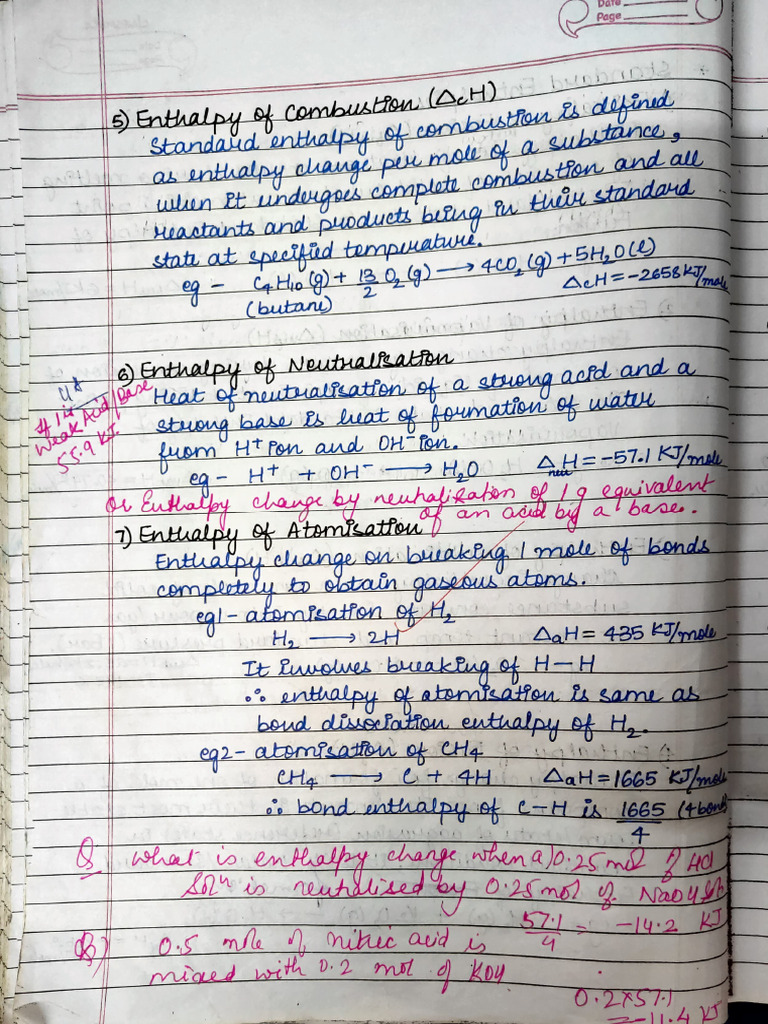 Date
Page
5) Enthalpy of Combustion (ΔcH)
Standard enthalpy of combustion is defined
as enthalpy change per mole of a substance,
when it undergoes complete combustion and all
reactants and products being in their standard
state at specified temperature.
eg - C₄H₁₀(g) + 13/2 O₂(g) ⟶ 4CO₂(g) + 5H₂O(l)
(butane) ΔcH = -2658 KJ/mole
6) Enthalpy of Neutralisation
Heat of neutralisation of a strong acid and a
strong base is heat of formation of water
from H⁺ ion and OH⁻ ion.
eg - H⁺ + OH⁻ ⟶ H₂O ΔneuH = -57.1 KJ/mole
Weak Acid/Base
55.9 KJ
Or Enthalpy change by neutralization of 1 g equivalent
of an acid by a base.
7) Enthalpy of Atomisation
Enthalpy change on breaking 1 mole of bonds
completely to obtain gaseous atoms.
eg1 - atomisation of H₂
H₂ ⟶ 2H ΔaH = 435 KJ/mole
It involves breaking of H-H
∴ enthalpy of atomisation is same as
bond dissociation enthalpy of H₂.
eg2 - atomisation of CH₄
CH₄ ⟶ C + 4H ΔaH = 1665 KJ/mole
∴ bond enthalpy of C-H is 1665/4 (4 bond
Q What is enthalpy change when a) 0.25 mol of HCl
Solⁿ is neutralised by 0.25 mol of NaOH Solⁿ
57.1/4 = -14.2 KJ
B) 0.5 mole of nitric acid is
mixed with 0.2 mol of KOH
0.2×57.1
= -11.4 KJ